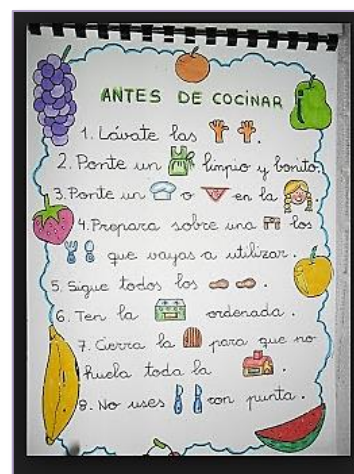 ANTES DE COCINAR
1. Lávate las .
2. Ponte un limpio y bonito.
3. Ponte un o en la
4. Prepara sobre una los
que vayas a utilizar.
5. Sigue todos los .
6. Ten la ordenada .
7. Cierra la para que no
huela toda la .
8. No uses con punta .